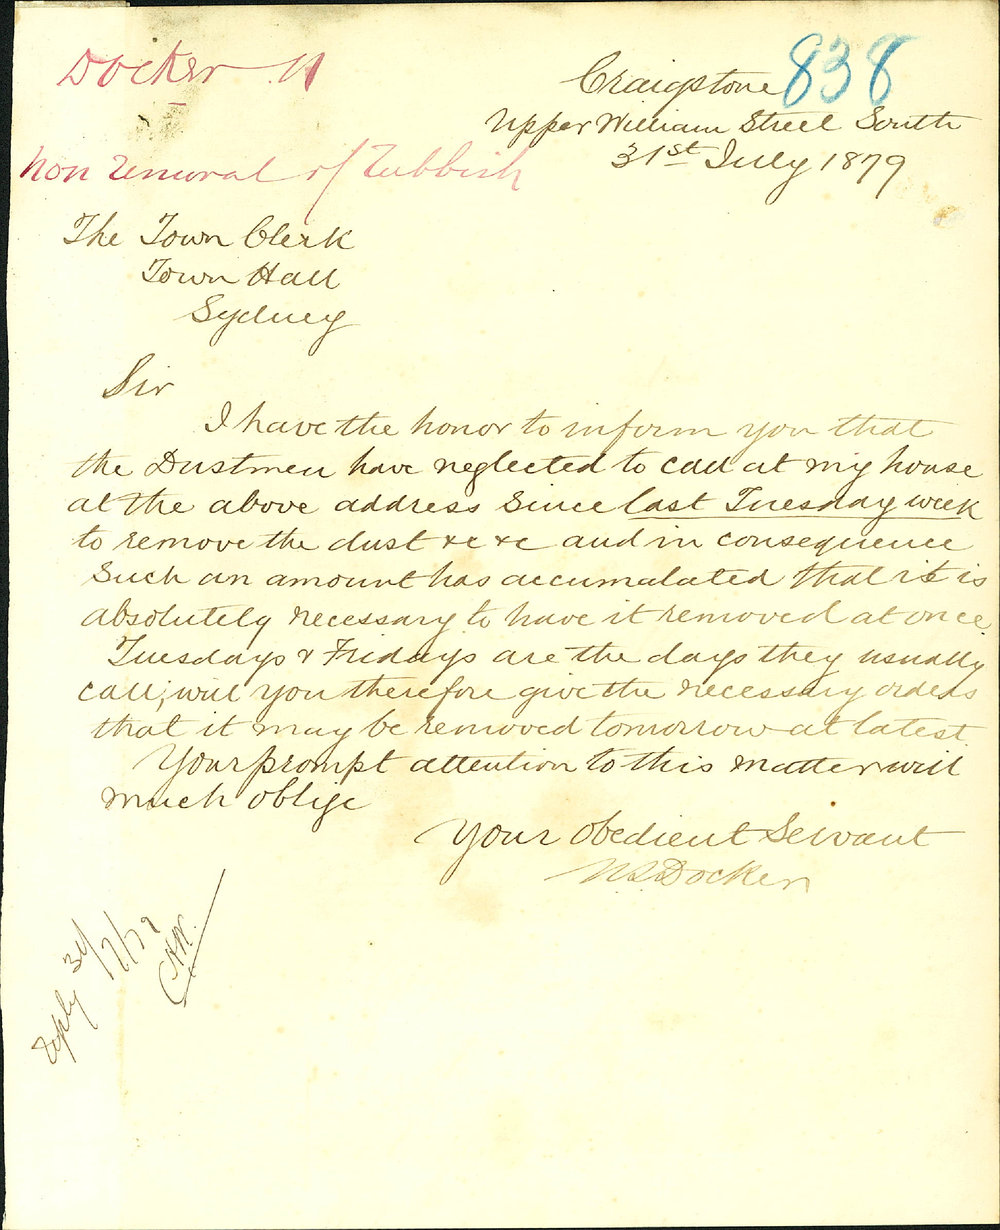 Docker
838
Craigstone
Upper William Street South
31st July 1879
Non removal of rubbish
The Town Clerk
Town Hall
Sydney
Sir
I have the honor to inform you that
the Dustmen have neglected to call at my house
at the above address since last Tuesday week
to remove the dust &c &c and in consequence
such an amount has accumulated that it is
absolutely necessary to have it removed at once
Tuesdays & Fridays are the days they usually
call; will you therefore give the necessary orders
that it may be removed tomorrow at latest
Your prompt attention to this matter will
much oblige
Your obedient Servant
Docker
Reply 31/7/79